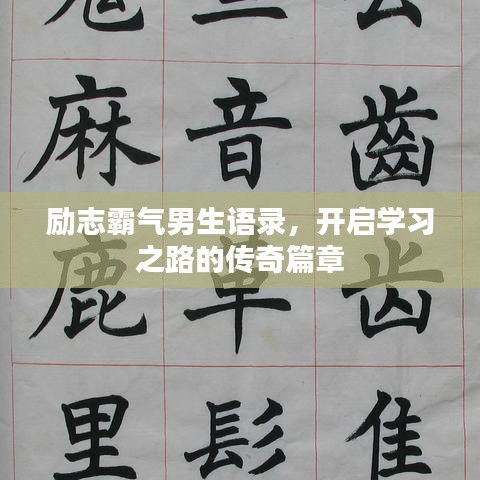 麻 音 齒
励志霸气男生语录，开启学习
之路的传奇篇章
鹿 卓
里 髟 隹